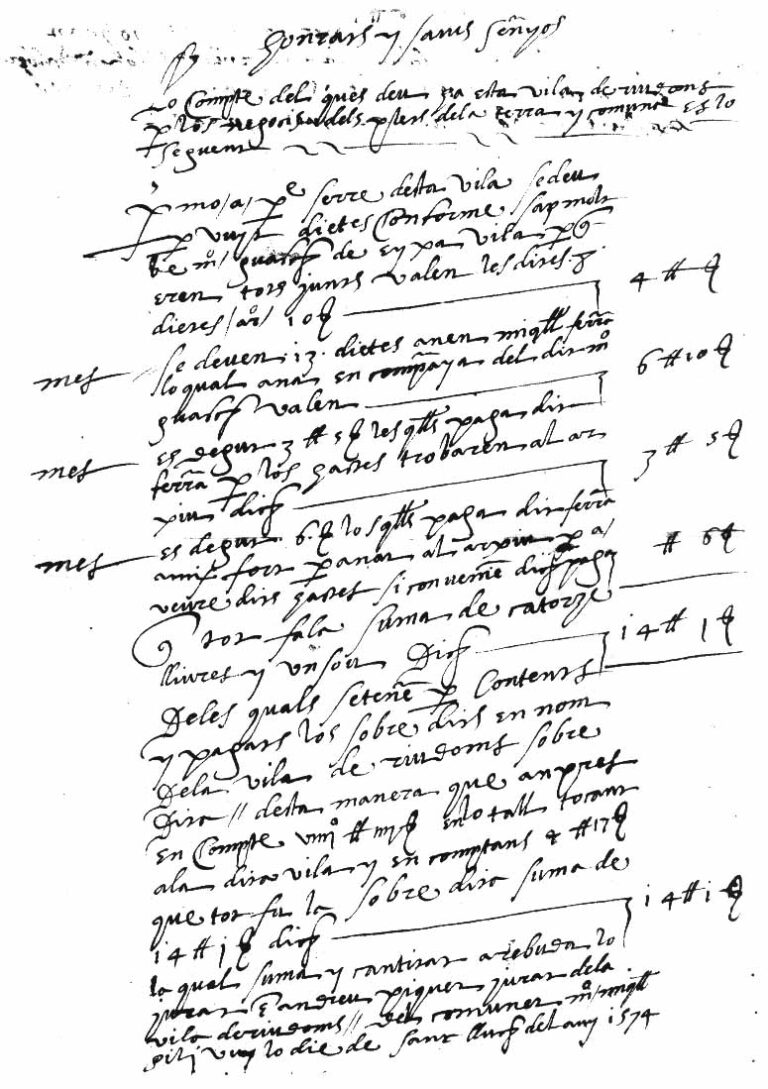 Honrats y savis senyos
Lo Compte del ques deu pa esta vila de riudoms
p los negocis dels plets dela terra y comuna es lo
seguent
P mo a pe serre desta vila se deu
p vuyt dietes Conforme sap molt
be mo guasch de eyxa vila
eren tots junts valen les dites 8
dietes / a / 10 ß 4 ll ß
mes se deuen 13 dietes a'nen miqll ferra
lo qual ana en companya del dit mo
guasch valen 6 ll 10 ß
mes es degut 3 ll 5 ß les qlls paga dit
ferra p los gastos trobaren al ar
xiu dich 3 ll 5 ß
mes es degut 6 ß los qlls paga dit ferra
fort p anar al arxiu p a
veure dits gastos si convenie dich paga ll 6 ß
q tot fa la suma de catorze
lliures y un sou Dich 14 ll 1 ß
Deles quals se tene p Contents
y pagats los sobre dits en nom
Dela vila de riudoms sobre
Dita // desta manera que an pres
en Compte ll ß en lo tall tocant
ala dita vila y en comptans 4 ll 17 ß
que tot fa la sobre dita suma de
14 ll 1 ß dich 14 ll 1 ß
la qual suma y cantitat a rebuda lo
jurat andreu piquer jurat dela
vila de riudoms // del comuner mo miqll
gili vuy lo die de sant lluch del any 1574